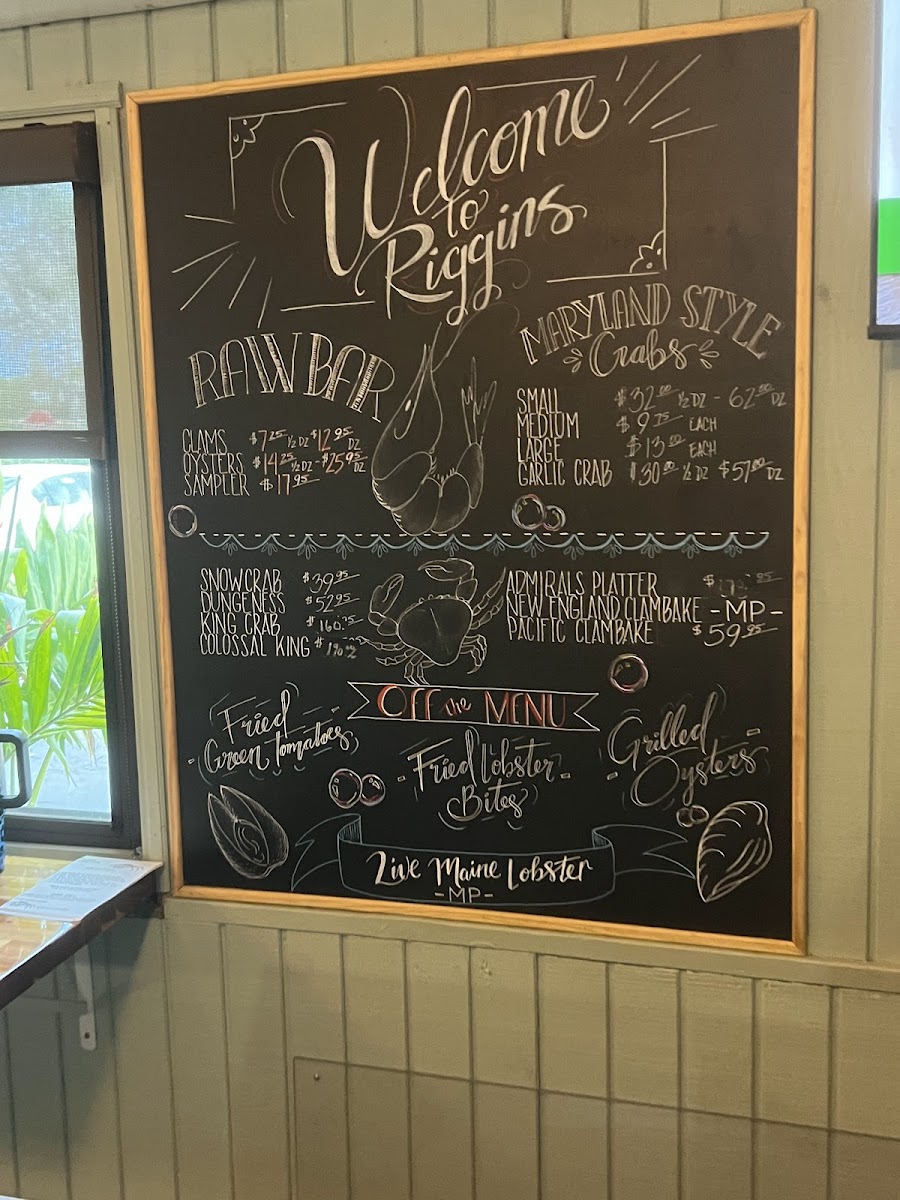 Welcome
to
Riggins
RAW BAR
CLAMS $7.25 ½ DZ $12.95 DZ
OYSTERS $14.25 ½ DZ - $25.95 DZ
SAMPLER $17.95
MARYLAND STYLE
Crabs
SMALL $32.00 ½ DZ - 62.00 DZ
MEDIUM $9.75 EACH
LARGE $13.00 EACH
GARLIC CRAB $30.00 ½ DZ $57.00 DZ
SNOWCRAB $39.95
DUNGENESS $52.95
KING CRAB $160.75
COLOSSAL KING $
ADMIRALS PLATTER $
NEW ENGLAND CLAMBAKE -MP-
PACIFIC CLAMBAKE $59.95
OFF the MENU
Fried
Green tomatoes
Fried lobster
Bites
Grilled
Oysters
Live Maine Lobster
-MP-